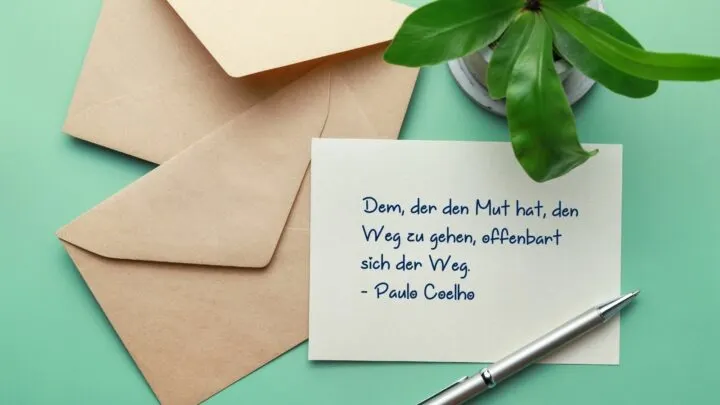 Dem, der den Mut hat, den
Weg zu gehen, offenbart
sich der Weg.
- Paulo Coelho